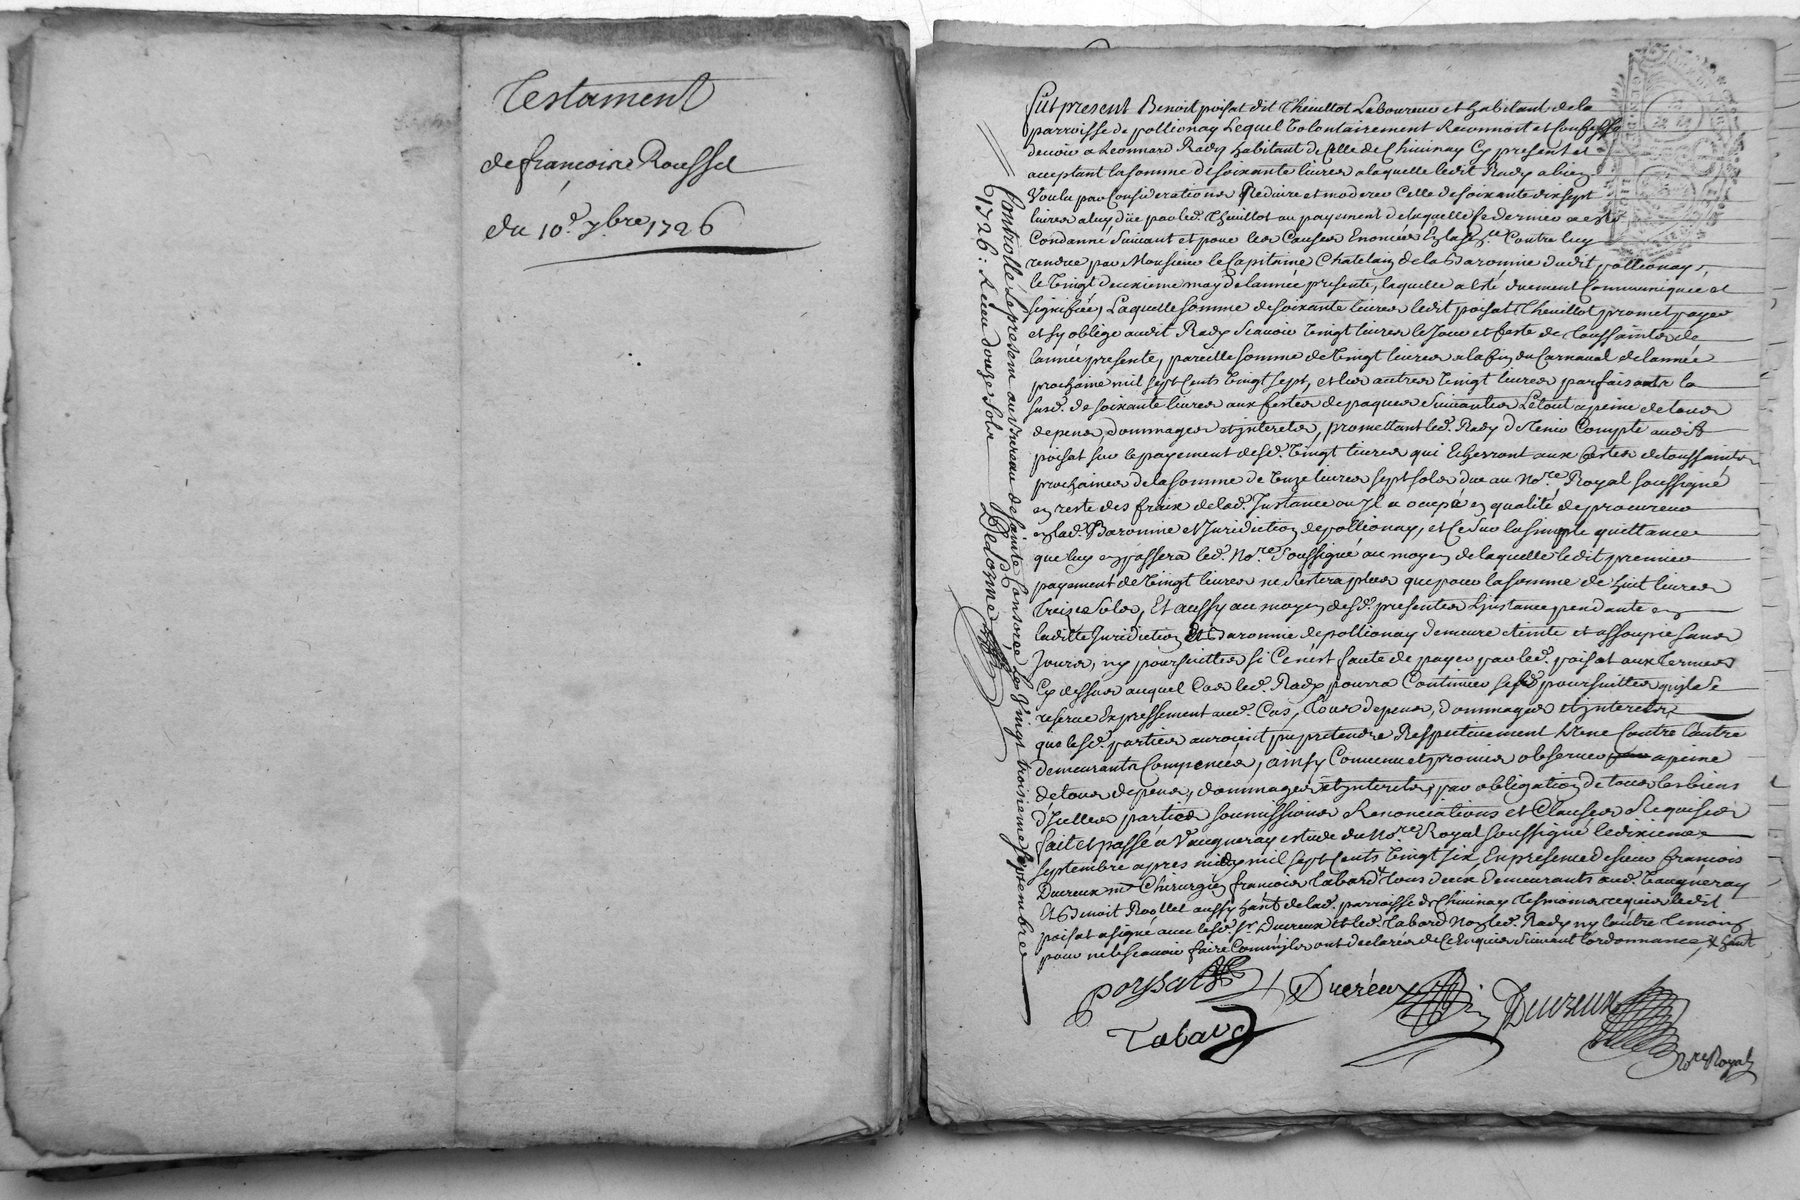 Testament
de françoise Roussel
du 10e. 7bre 1726
Fut present Benoit poisat dit Theuillot Laboureur et habitant de la
parroisse de pollionay Lequel Volontairement Reconnoit et Confesse
devoir a Leonnard Radix habitant de Celle de Chivinay Cy present et
acceptant la somme de soixante livres a laquelle ledit Radix a bien
Voulu par Considerations Reduire et moderer Celle de soixante dix sept
livres a luy düe par led. Theuillot au payement de laquelle se dernier a esté
Condanné Suivant et pour les Causes Enoncées En la Contre luy
rendue par Monsieur le Capitaine Chatelain de la Baronnie dudit pollionay,
le Vingt deuxieme may de lannée presente, laquelle a eté duement Communiquée et
signifiée, Laquelle somme de soixante livres ledit poisat Theuillot promet payer
et sy oblige audit Radix Scavoir Vingt livres le Jour et feste de Toussaints de
lannée presente, pareille somme de Vingt livres a la fin du Carnaval de lannée
prochaine mil sept Cents Vingt sept, et les autres Vingt livres parfaisants la
susd. de soixante livres aux festes de paques Suivantes Le tout a peine de tous
depens, dommages et interets, promettant led. Radix de tenir Compte audit
poisat sur le payement desd. Vingt livres qui Echerront aux festes de toussaints
prochaines de la somme de Onze livres sept sols due au Nore. Royal soussigné
en reste des fraix de lad. Instance ou Il a ocupé en qualité de procureur
en lad. Baronnie et Juridiction de pollionay, et Ce Sur la simple quittance
que luy en passera led. Nore. soussigné au moyen de laquelle ledit premier
payement de Vingt livres ne Restera plus que pour la somme de huit livres
treize Sols, Et aussy au moyen desd. presentes Linstance pendante en
laditte Juridiction et Baronnie de pollionay demeure eteinte et assoupie sans
Jours, ny poursuittes si Ce n'est faute de payer par led. poisat aux termes
Cy dessus auquel Cas led. Radix pourra Continuer ses poursuittes quil se
reserve Expressement aud. Cas, Tous depens, dommages et interets
que lesd. parties auroient pu pretendre Respectivement L'une Contre L'autre
demeurants Compencés, ainsy Convenu et promis observer a peine
de tous depens, dommages et interets, par obligation de tous les biens
d'Icelles parties soumissions Renonciations et Clauses Requises
fait et passé a Vaugneray estude du Nore. Royal soussigné le dixieme
septembre apres midy mil sept Cents Vingt six En presence de sieur françois
Ducreux me. Chirurgien françois tabard tous deux demeurants aud. Vaugneray
Et Benoit Rosset aussy habt. de lad. parroisse de Chivinay tesmoins requis ledit
poisat a signé avec lesd. sr. Ducreux et led. tabard Non led. Radix ny l'autre temoins
pour ne le Scavoir faire Comme ils ont declarés de Ce Enquis Suivant l'ordonnance
poysat
Ducreux
Ducreux
Tabard
Nore Royal
Controllé le present au Bureau de sainte Consorce Le Vingt troisieme septembre
1726: Receu douze sols